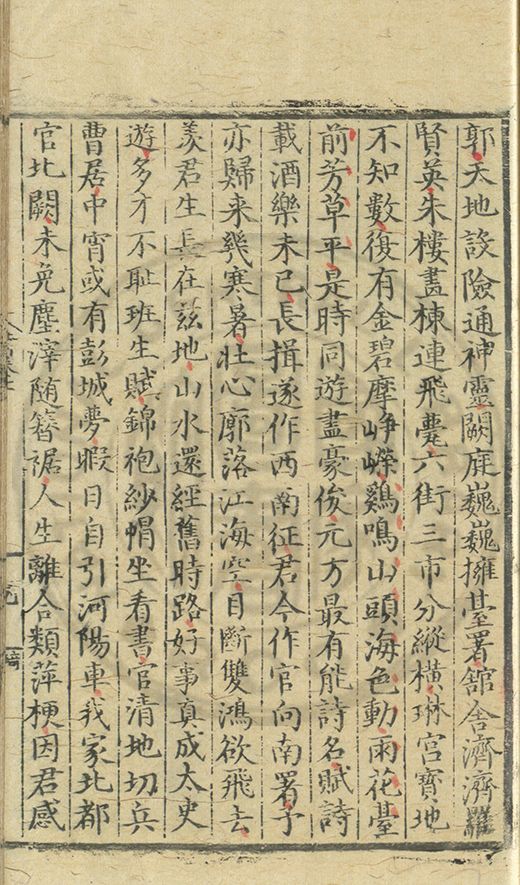 郭天地設險通神靈闕庭巍巍擁臺署舘舍濟濟羅
賢英朱樓畫棟連飛甍六街三市分縱橫琳宮寶地
不知數復有金碧摩崢嶸鷄鳴山頭海色動雨花臺
前芳草平是時同遊盡豪俊元方最有能詩名賦詩
載酒樂未已長揖遂作西南征君今作官向南署予
亦歸来幾寒暑壮心廓落江海空目斷雙鴻欲飛去
羨君生長在兹地山水還經舊時路好事真成太史
遊多才不恥班生賦錦袍紗帽坐看書官清地切兵
曹居中宵或有彭城夢暇日自引河陽車我家北都
官北闕未免塵滓随簪裾人生離合類萍梗因君感